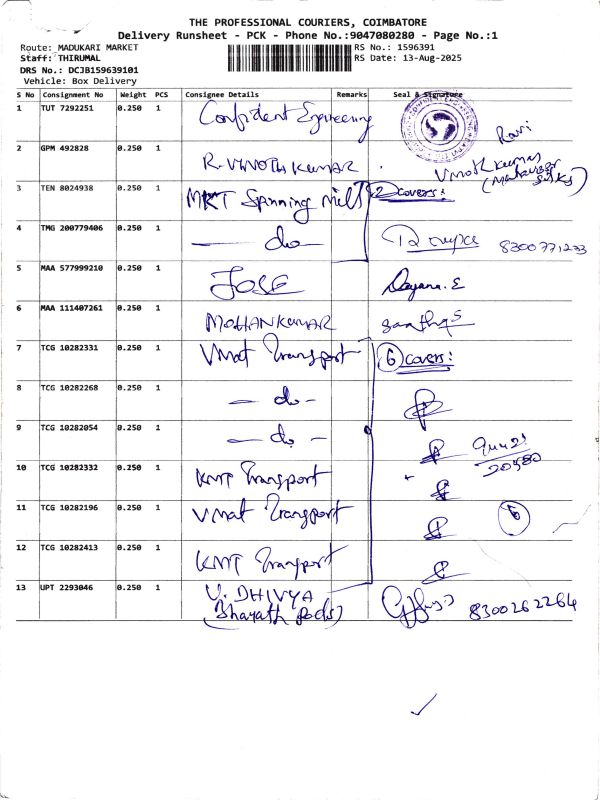 THE PROFESSIONAL COURIERS, COIMBATORE
Delivery Runsheet - PCK - Phone No.:9047080280 - Page No.:1
Route: MADUKARI MARKET
Staff: THIRUMAL
DRS No.: DCJB159639101
Vehicle: Box Delivery
RS No.: 1596391
RS Date: 13-Aug-2025
S No Consignment No Weight PCS Consignee Details Remarks Seal & Signature
1 TUT 7292251 0.250 1 Confident Engineering Ravi
2 GPM 492828 0.250 1 R. VINOTH KUMAR Vinoth Kumar
3 TEN 8024938 0.250 1 MKT Spinning Mills 2 covers:
4 TMG 200779406 0.250 1 — do — 8300771233
5 MAA 577999210 0.250 1 JOSE Dayana. E
6 MAA 111407261 0.250 1 MOHANKUMAR
7 TCG 10282331 0.250 1 Vmat Transport 6 covers:
8 TCG 10282268 0.250 1 — do —
9 TCG 10282054 0.250 1 — do —
10 TCG 10282332 0.250 1 KMT Transport
11 TCG 10282196 0.250 1 Vmat Transport 6
12 TCG 10282413 0.250 1 KMT Transport
13 UPT 2293046 0.250 1 V. DHIVYA 8300262264
(Bharath